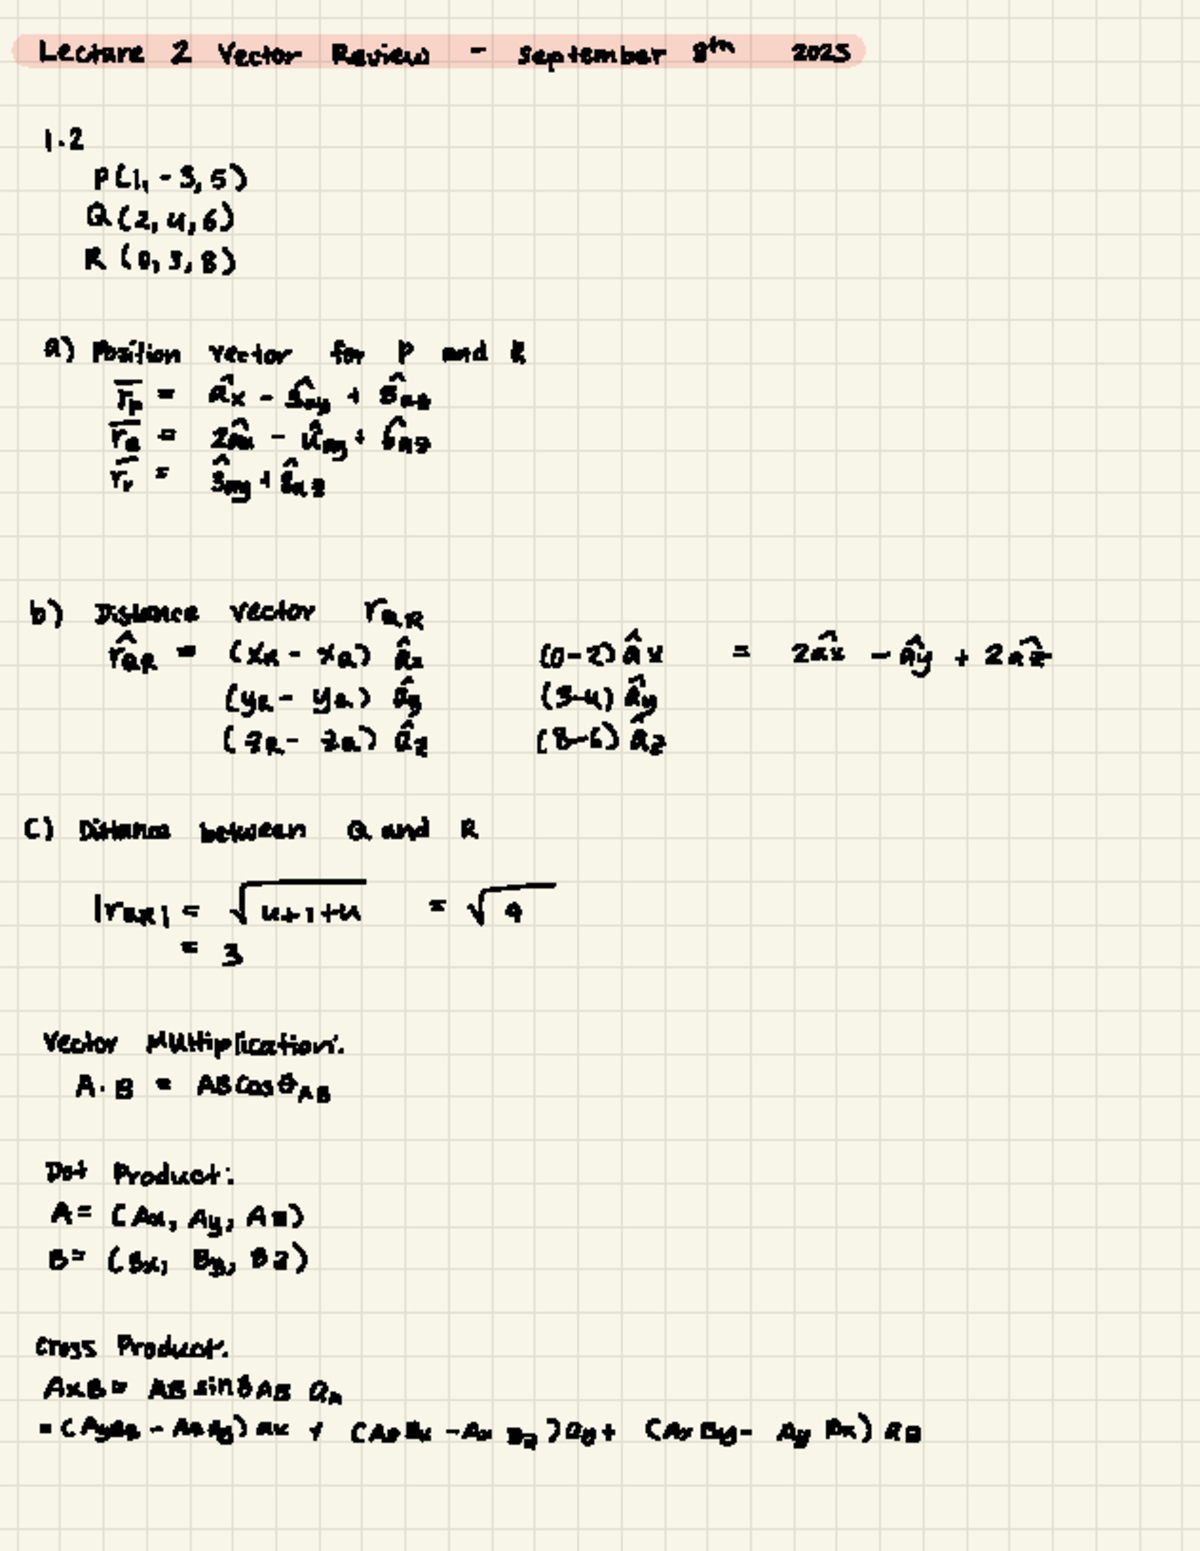 Lecture 2 Vector Review - September 8th 2025
1.2
P(1, -3, 5)
Q (2, 4, 6)
R (0, 3, 8)
a) Position vector for P and R
r̅p = âx - 3ây + 5âz
r̅Q = 2âx - 4ây + 6âz
r̅r = 3ây + 8âz
b) Distance vector rQR
r̂QR = (xR - xQ) âx (0-2) âx = 2âx - ây + 2âz
(yR - yQ) ây (3-4) ây
(zR - zQ) âz (8-6) âz
c) Distance between Q and R
|rQR| = √4+1+4 = √9
= 3
Vector Multiplication:
A · B = AB cos θAB
Dot Product:
A = (Ax, Ay, Az)
B = (Bx, By, Bz)
Cross Product:
A×B = AB sin θAB an
= (AyBz - AzBy) ax + (AzBx - Ax Bz) ay + (Ax By - Ay Bx) az